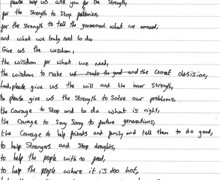 please help us ask you for the strength,
for the strength to stop pollution
for the strength to tell the government what we need,
and what we truly need to do
Give us the wisdom,
the wisdom for what we need,
the wisdom to make us and the correct decision,
Lord, please give us the will and the inner strength,
So please give us the Strength to Solve our problems
the courage to Stop and to do what is right,
the Courage to Song to future generations,
the Courage to help friends and family and tell them to do good,
to help Strangers and Stop droughts,
to help the people with no food,
to help the people where it is too hot,